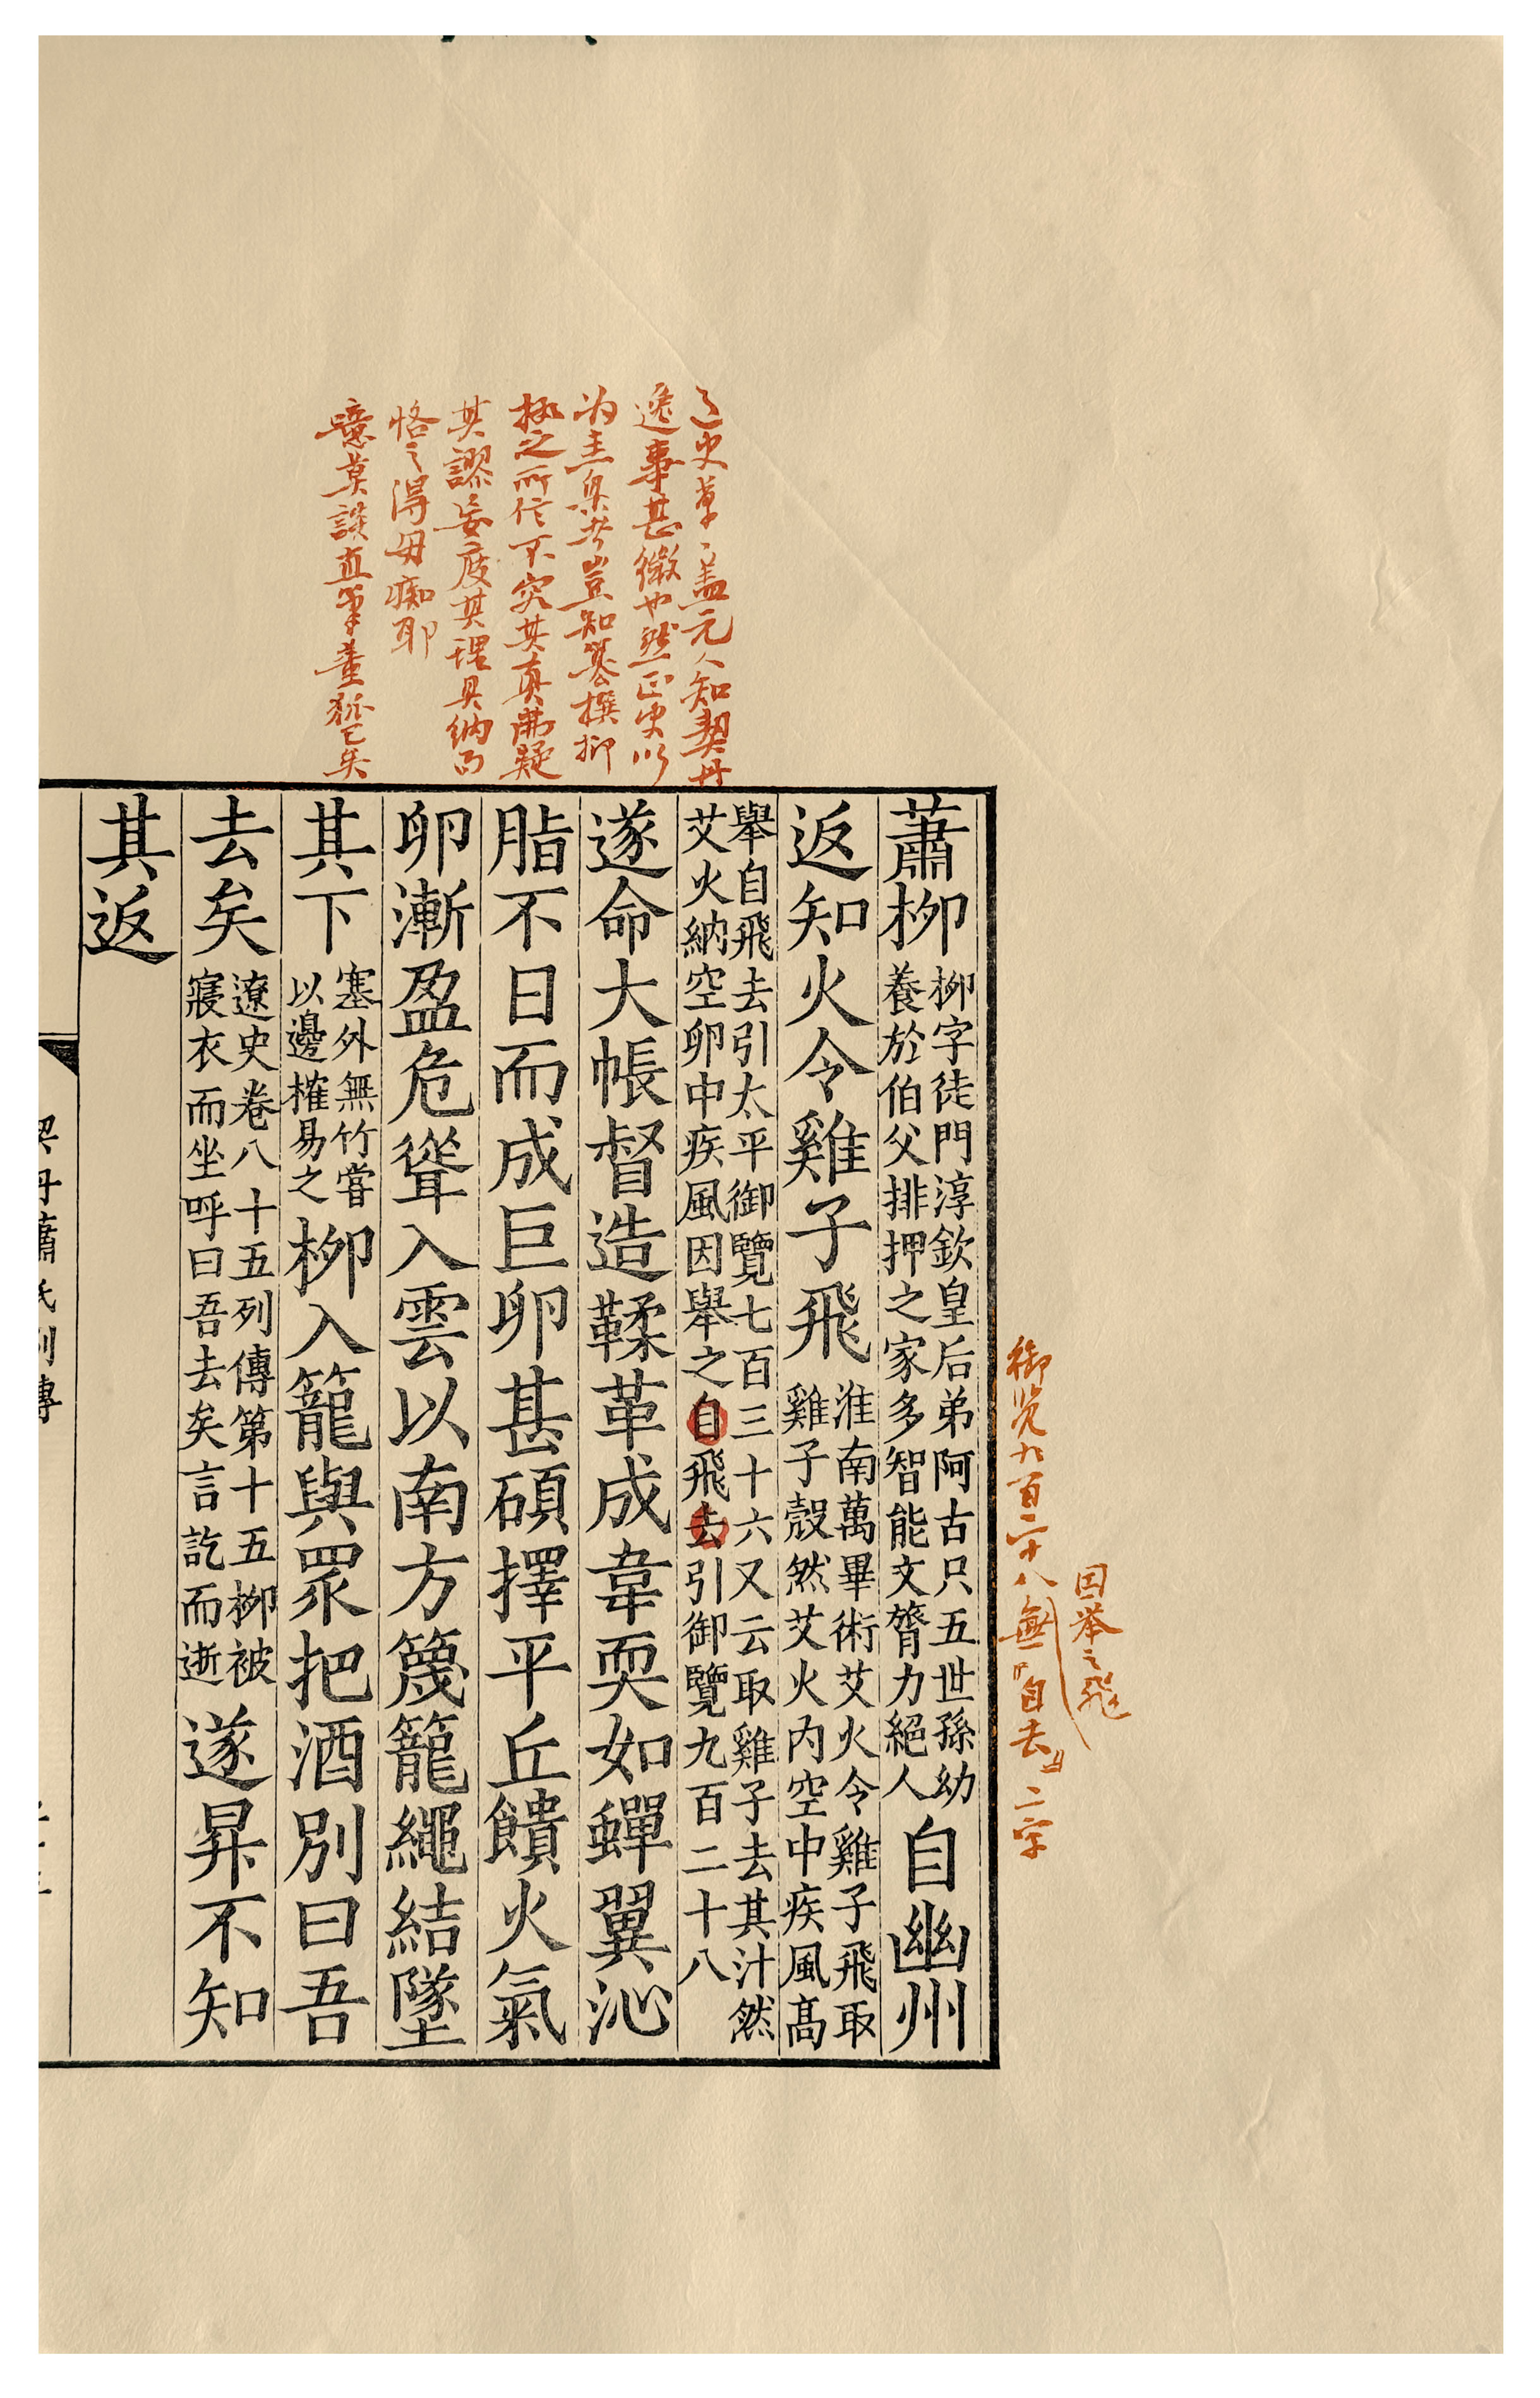 辶史草〻盖元人知契丹
逸事甚微也然正史以
为圭臬者豈知纂撰抑
极之而信不究其真弗疑
其謬妄度其理具納而
恪之得毋痴耶
噫莫談直筆董狐已矣
御览九百二十八無『自去』二字
因举之飛
蕭柳
柳字徒門淳欽皇后弟阿古只五世孫幼
養於伯父排押之家多智能文膂力絕人
自幽州
返知火令雞子飛
淮南萬畢術艾火令雞子飛取
雞子殼然艾火内空中疾風高
舉自飛去引太平御覽七百三十六又云取雞子去其汁然
艾火納空卵中疾風因舉之自飛去引御覽九百二十八
遂命大帳督造鞣革成韋耎如蟬翼沁
脂不日而成巨卵甚碩擇平丘饋火氣
卵漸盈危聳入雲以南方篾籠繩結墜
其下
塞外無竹嘗
以邊榷易之
柳入籠與眾把酒別曰吾
去矣
遼史卷八十五列傳第十五柳被
寢衣而坐呼曰吾去矣言訖而逝
遂昇不知
其返
契丹蕭氏列傳